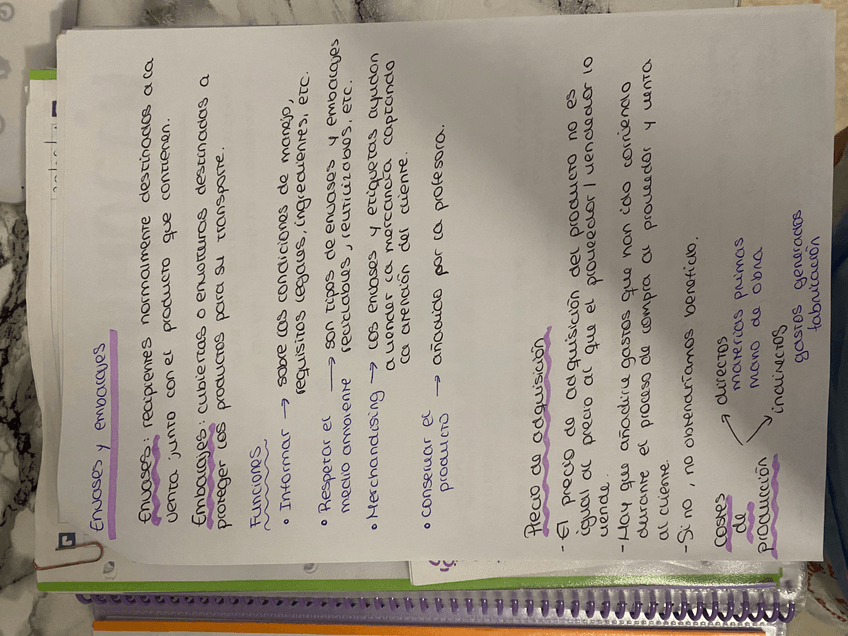 Envases y embalajes
Envases: recipientes normalmente destinados a la
venta junto con el producto que contienen.
Embalajes: cubiertas o envolturas destinadas a
proteger los productos para su transporte.
Funciones
• Informar → sobre las condiciones de manejo,
requisitos legales, ingredientes, etc.
• Respetar el medio ambiente → son tipos de envases y embalajes
reciclables, reutilizables, etc.
• Merchandising → los envases y etiquetas ayudan
a vender la mercancía captando
la atención del cliente.
• Conservar el producto → añadido por la profesora.
Precio de adquisición
- El precio de adquisición del producto no es
igual al precio al que el proveedor / vendedor lo
vende.
- Hay que añadirle gastos que han ido corriendo
durante el proceso de compra al proveedor y venta
al cliente.
- Si no, no obtendríamos beneficio.
Costes
de
producción
→ directos
materias primas
mano de obra
→ indirectos
gastos generados
fabricación